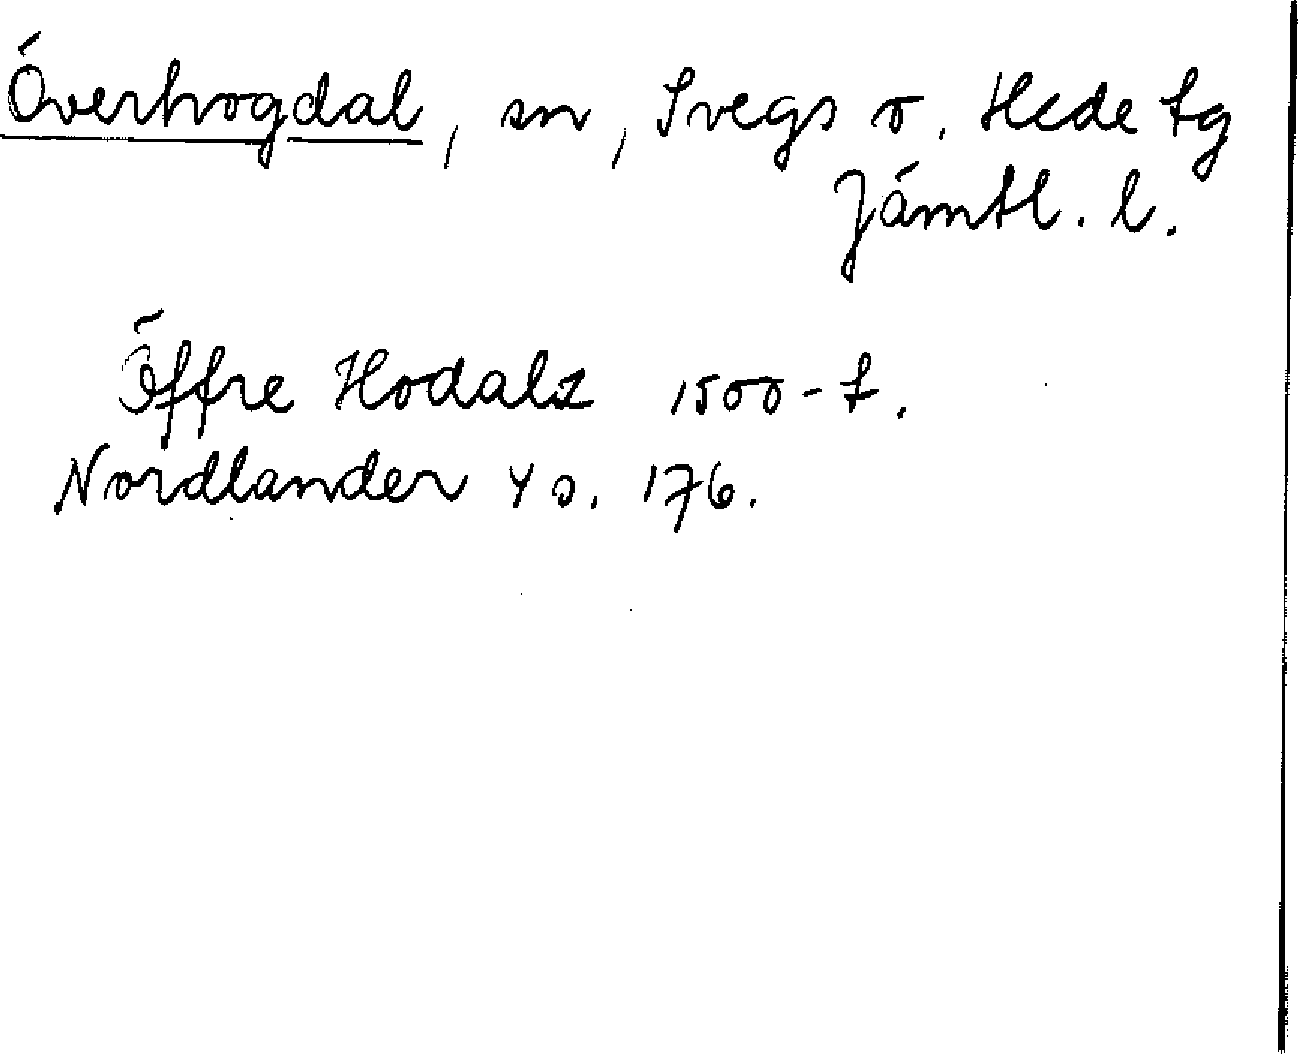 Överhogdal, sn, Svegs o. Hede tg
Jämtl. l.
Öffre Hodalz 1500-t.
Nordlander 4 s. 176.